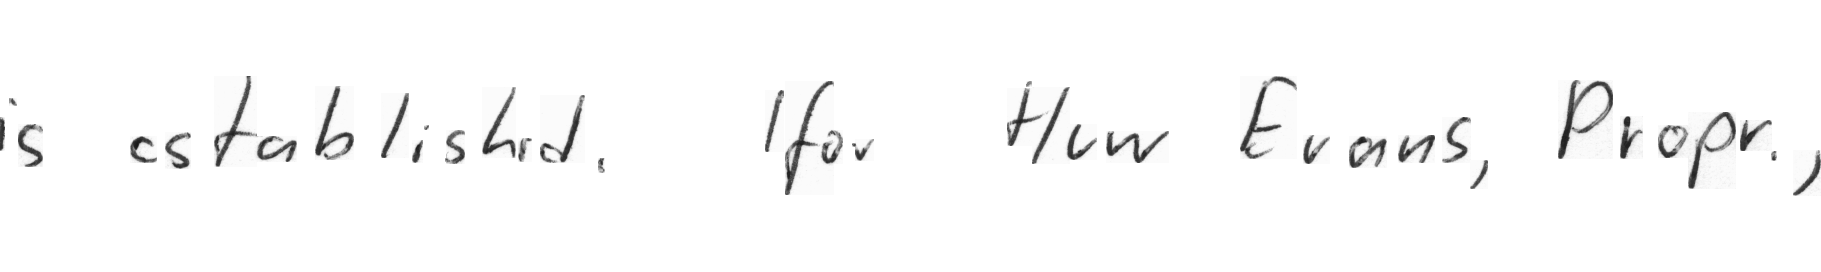 is established. Ifor Huw Evans, Propr.,